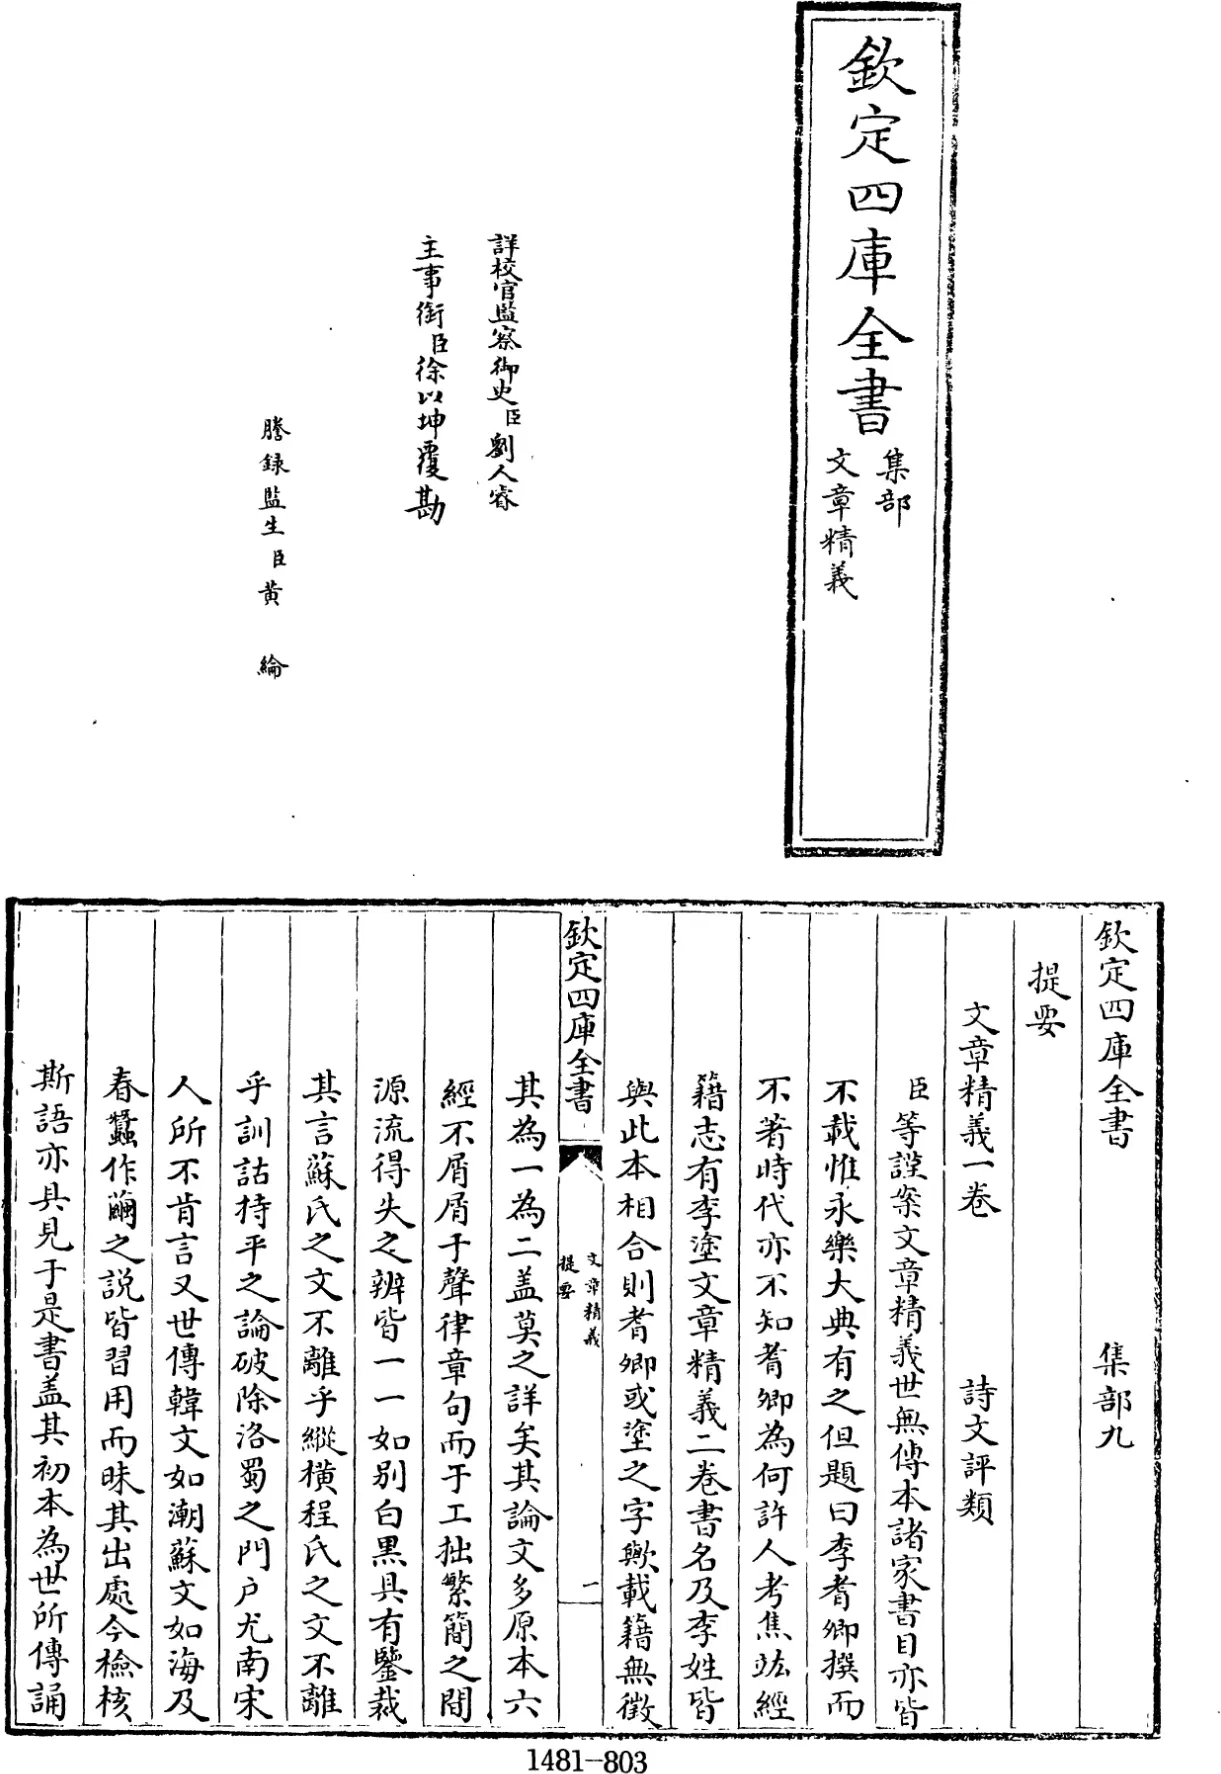 欽定四庫全書
集部
文章精義
詳校官監察御史臣劉人睿
主事銜臣徐以坤覆勘
謄錄監生臣黃綸
欽定四庫全書 集部九
提要
文章精義一卷 詩文評類
臣等謹案文章精義世無傳本諸家書目亦皆
不載惟永樂大典有之但題曰李耆卿撰而
不著時代亦不知耆卿為何許人考焦竑經
籍志有李塗文章精義二卷書名及李姓皆
與此本相合則耆卿或塗之字歟載籍無徵
欽定四庫全書
文章精義
提要
一
其為一為二盖莫之詳矣其論文多原本六
經不屑屑于聲律章句而于工拙繁簡之間
源流得失之辨皆一一如别白黒具有鑒裁
其言蘇氏之文不離乎縱橫程氏之文不離
乎訓詁持平之論破除洛蜀之門户尤南宋
人所不肯言又世傳韓文如潮蘇文如海及
春蠶作繭之説皆習用而昧其出處今檢核
斯語亦具見于是書盖其初本為世所傳誦
1481-803